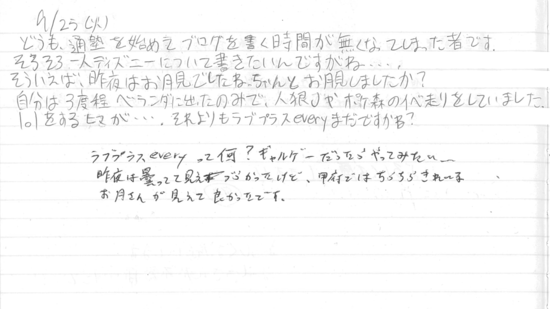 9/25(火)
どうも、通塾を始めてブログを書く時間が無くなってしまった者です.
そろそろ一人ディズニーについて書きたいんですがね‥‥,
そういえば、昨夜はお月見でしたね.ちゃんとお月見しましたか?
自分は3度程ベランダに出たのみで、人狼Jやポケ森のイベ走りをしていました.
1.1をするヒマが‥‥. それよりもラブプラスeveryまだですかね?
ラブプラスeveryって何?ギャルゲーだったらやってみたい〜
昨夜は曇ってて見えづらかったけど、甲府ではちらちらきれいな
お月さんが見えて良かったです。